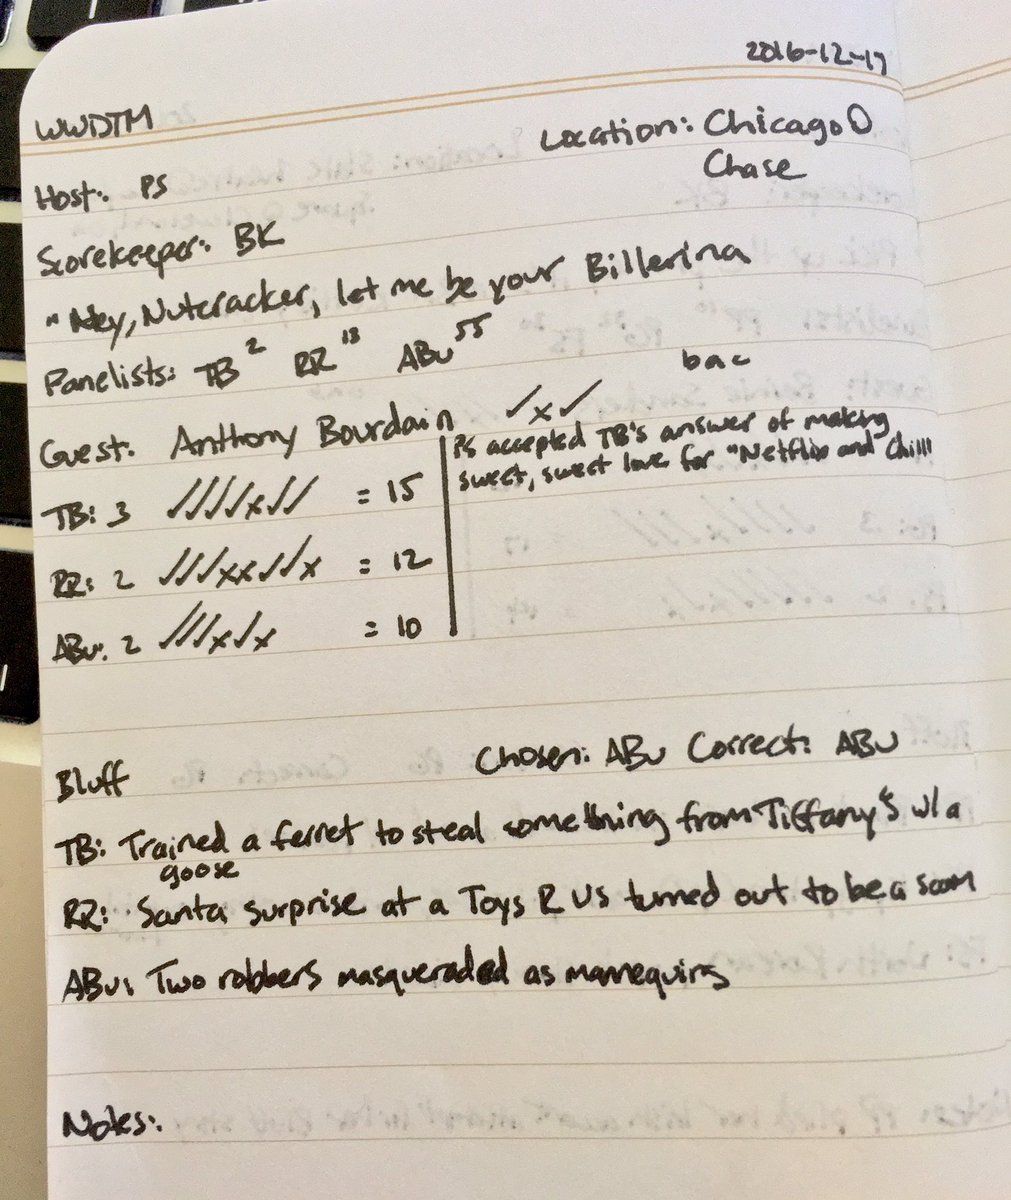 2016-12-17
WWDTM
Location: Chicago O
Chase
Host: PS
Scorekeeper: BK
"Hey, Nutcracker, let me be your Billerina
Panelists: TB 2 RR 13 ABu 55
bac
Guest: Anthony Bourdain ✓x✓
PS accepted TB's answer of making
sweet, sweet love for "Netflix and Chill"
TB: 3 ✓✓✓✓x✓✓ = 15
RR: 2 ✓✓✓xx✓✓x = 12
ABu: 2 ✓✓✓x✓x = 10
Bluff Chosen: ABu Correct: ABu
TB: Trained a ferret to steal something from Tiffany's w/ a
goose
RR: Santa surprise at a Toys R Us turned out to be a scam
ABu: Two robbers masqueraded as mannequins
Notes: